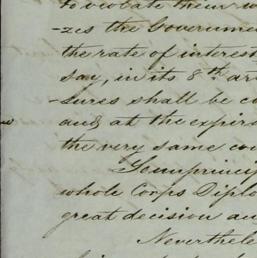 to violate their
-zes the Governme
the rate of interes
say, in its 8th ar
-sures shall be co
and at the expir
the very same co
whole Corps Diplo
great decision an
Neverthele